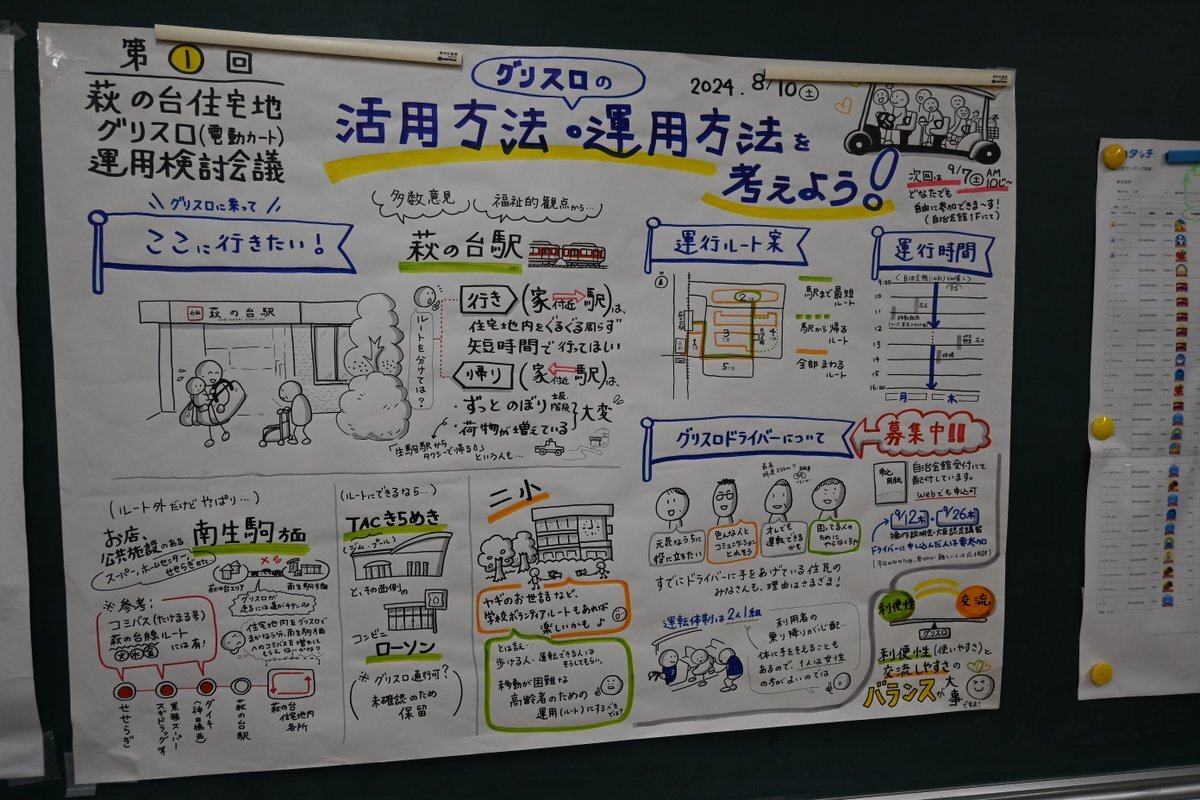 第1回
萩の台住宅地
グリスロ(電動カート)
運用検討会議
グリスロの
活用方法・運用方法を
考えよう!
2024.8/10(土)
次回は 9/7(土) AM10じ〜
どなたでも
自由に参加できま〜す!
(自治会館1Fにて)
グリスロに乗って
ここに行きたい!
多数意見
福祉的観点から…
萩の台駅
萩の台駅
ルートを分けては?
行き (家付近 駅)は、
住宅地内をぐるぐる回らず
短時間で行ってほしい
帰り (家付近 駅)は、
・ずっとのぼり 坂、階段
・荷物が増えている
大変
「生駒駅から
タクシーで帰る」
という人も…
運行ルート案
1丁目
2丁目
3丁目
4丁目
5丁目
駅まで最短
ルート
駅から帰る
ルート
全部まわる
ルート
運行時間
9:00
10
11
12
13
14
15
16:00
月
木
グリスロドライバーについて
募集中!!
元気なうちに
役に立ちたい
色んな人と
コミュニケーション
とれそう
オレでも
運転できる
かも
困ってる人の
ために
やらなくちゃ
すでにドライバーに手をあげている住民の
みなさんも、理由はさまざま!
申込用紙
自治会館受付にて
配付しています。
Webでも申込可
9/12(木)・9/26(木)
ドライバーに申し込んだ人は要参加
運転体制は2人1組
利用者の
乗り降りが心配…
体に手を支えることも
あるので、1人は女性
の方がよいのでは
利便性
交流
グリスロ
利便性(使いやすさ)と
交流しやすさの
バランスが大事
ですよ!
(ルート外だけどやっぱり…)
お店、
公共施設のある
南生駒方面
スーパー、ホームセンター、
せせらぎetc
萩の台エリア
南生駒方面
グリスロが
走るには道がキケン
住宅地内をグリスロで
まかなう分、南生駒方面
へのコミバスを増やして
もらえないかな?
※参考:
コミバス(たけまる号)
萩の台線ルート
には有!
火 水 金
せせらぎ
業務スーパー
スギドラッグ等
ダイキ
萩の台駅
萩の台
住宅地内
各所
(ルートにできるなら…)
TACきらめき
(ジム・プール)
と、その面側の
コンビニ
ローソン
※グリスロ通行可?
未確認のため
保留
二小
ヤギのお世話など、
学校ボランティアルートもあれば
楽しいかも♪
とは言え…
歩ける人、運転できる人は
そうしてもらい、
移動が困難な
高齢者のための
運用(ルート)にするべきでは?
タッチ